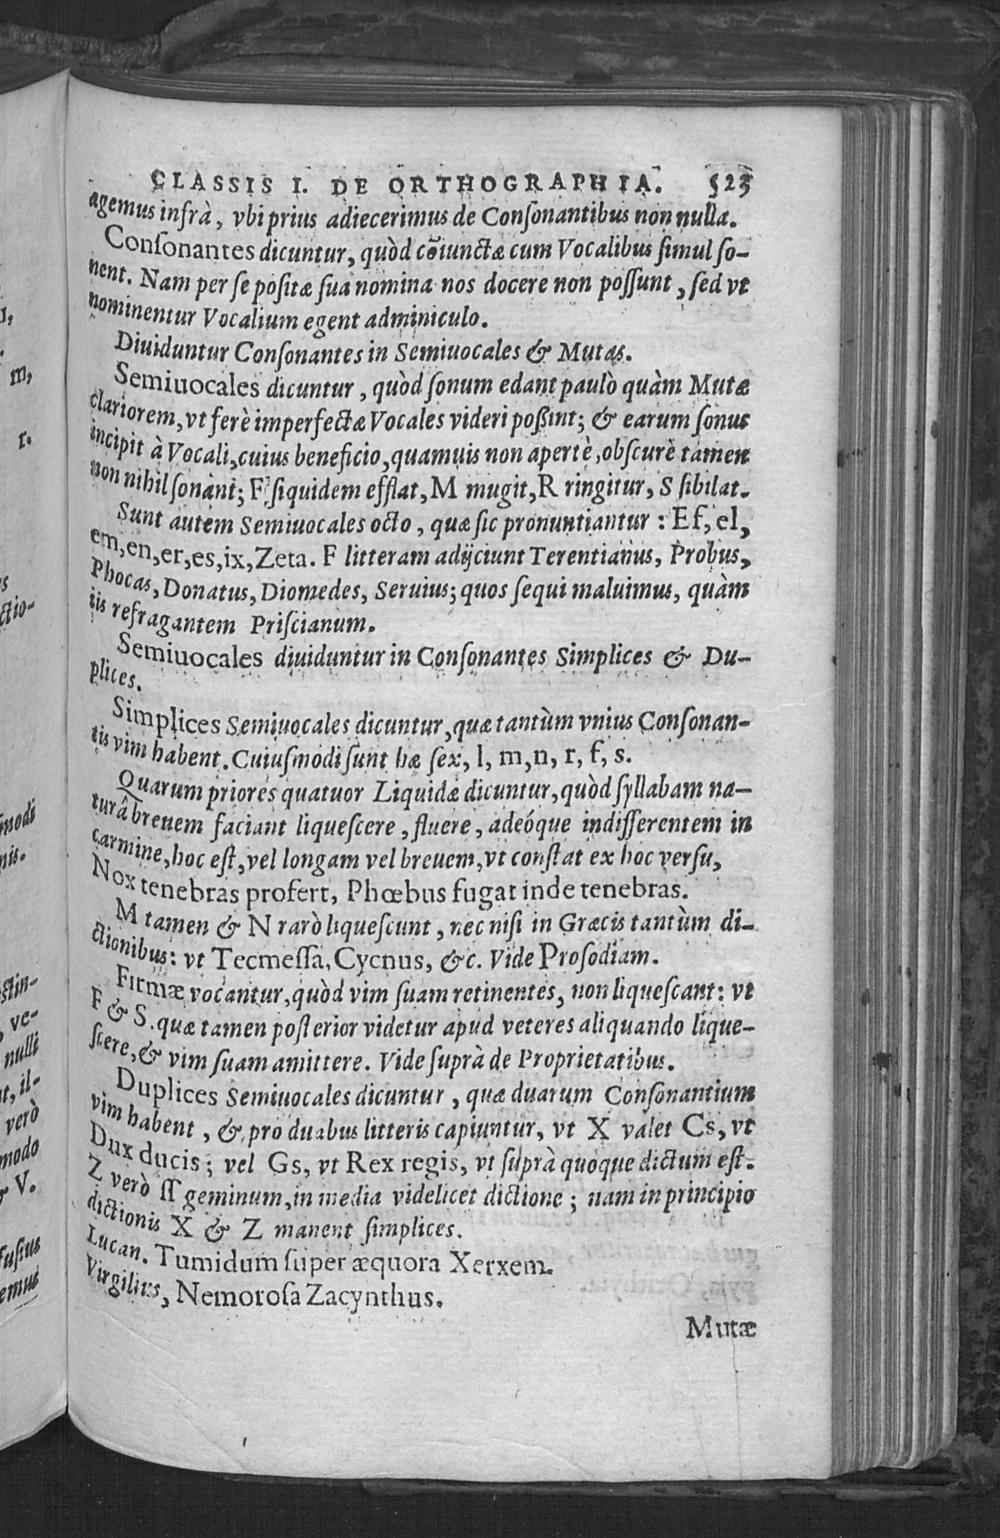 CLASSIS I. DE ORTHOGRAPHIA. 523
agemus infrà, vbi prius adiecerimus de Conſonantibus non nulla.
Conſonantes dicuntur, quòd cõiunctæ cum Vocalibus ſimul ſo-
nent. Nam per ſe poſitæ ſua nomina nos docere non poſſunt, ſed vt
nominentur Vocalium egent adminiculo.
Diuiduntur Conſonantes in Semiuocales & Mutas.
Semiuocales dicuntur, quòd ſonum edant paulò quàm Mutæ
clariorem, vt ferè imperfectæ Vocales videri poßint; & earum ſonus
incipit à Vocali, cuius beneficio, quamuis non apertè, obſcurè tamen
non nihil ſonant; F ſiquidem efflat, M mugit, R ringitur, S ſibilat.
Sunt autem Semiuocales octo, quæ ſic pronuntiantur: Ef, el,
em, en, er, es, ix, Zeta. F litteram adijciunt Terentianus, Probus,
Phocas, Donatus, Diomedes, Seruius; quos ſequi maluimus, quàm
iis refragantem Priſcianum.
Semiuocales diuiduntur in Conſonantes Simplices & Du-
plices.
Simplices Semiuocales dicuntur, quæ tantùm vnius Conſonan-
tis vim habent. Cuiuſmodi ſunt hæ ſex, l, m, n, r, f, s.
Quarum priores quatuor Liquidæ dicuntur, quòd ſyllabam na-
turâ breuem faciant liqueſcere, fluere, adeóque indifferentem in
carmine, hoc eſt, vel longam vel breuem, vt conſtat ex hoc verſu,
Nox tenebras profert, Phœbus fugat inde tenebras.
M tamen & N rarò liqueſcunt, nec niſi in Græcis tantùm di-
ctionibus: vt Tecmeſſa, Cycnus, &c. Vide Proſodiam.
Firmæ vocantur, quòd vim ſuam retinentes, non liqueſcant: vt
F & S. quæ tamen poſterior videtur apud veteres aliquando lique-
ſcere, & vim ſuam amittere. Vide ſuprà de Proprietatibus.
Duplices Semiuocales dicuntur, quæ duarum Conſonantium
vim habent, & pro duabus litteris capiuntur, vt X valet Cs, vt
Dux ducis; vel Gs, vt Rex regis, vt ſuprà quoque dictum eſt.
Z verò ſſ geminum, in media videlicet dictione; nam in principio
dictionis X & Z manent ſimplices.
Lucan. Tumidum ſuper æquora Xerxem.
Virgilius, Nemoroſa Zacynthus.
Mutæ